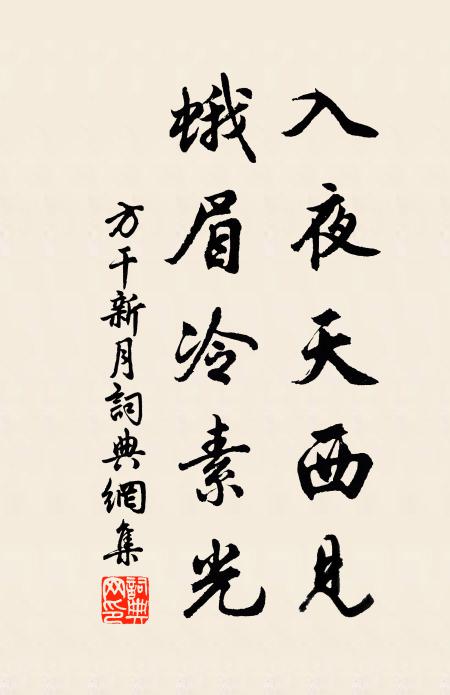 入夜天西見
蛾眉冷素光
方干新月詞典網集
詞典網印